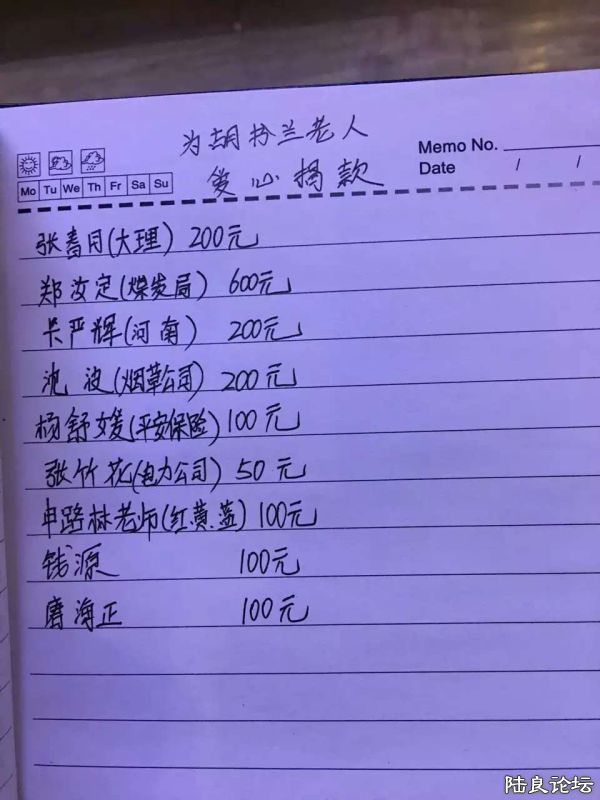 为胡粉兰老人
爱心捐款
Memo No.
Date / /
Mo Tu We Th Fr Sa Su
张春月(大理) 200元
郑汝定(煤炭局) 600元
卡严辉(河南) 200元
沈波(烟草公司) 200元
杨舒媛(平安保险) 100元
张竹花(电力公司) 50元
申路林老师(红黄蓝) 100元
钱源 100元
唐海正 100元
陆良论坛